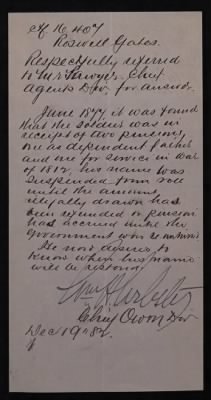 Cf. No 407
Roswell Gates.
Respectfully referred
to Mr Sawyer, Chief
Agents Div. for answer.
June 1877 it was found
that the soldier was in
receipt of two pensions,
one as dependent father
and one for service in War
of 1812, his name was
suspended from roll
until the amount
illegally drawn has
been refunded or pension
has accrued until the
Government was
He now desires to
know when his name
will be restored
Wm H. Webster
Chief Div
Dec 19" 82